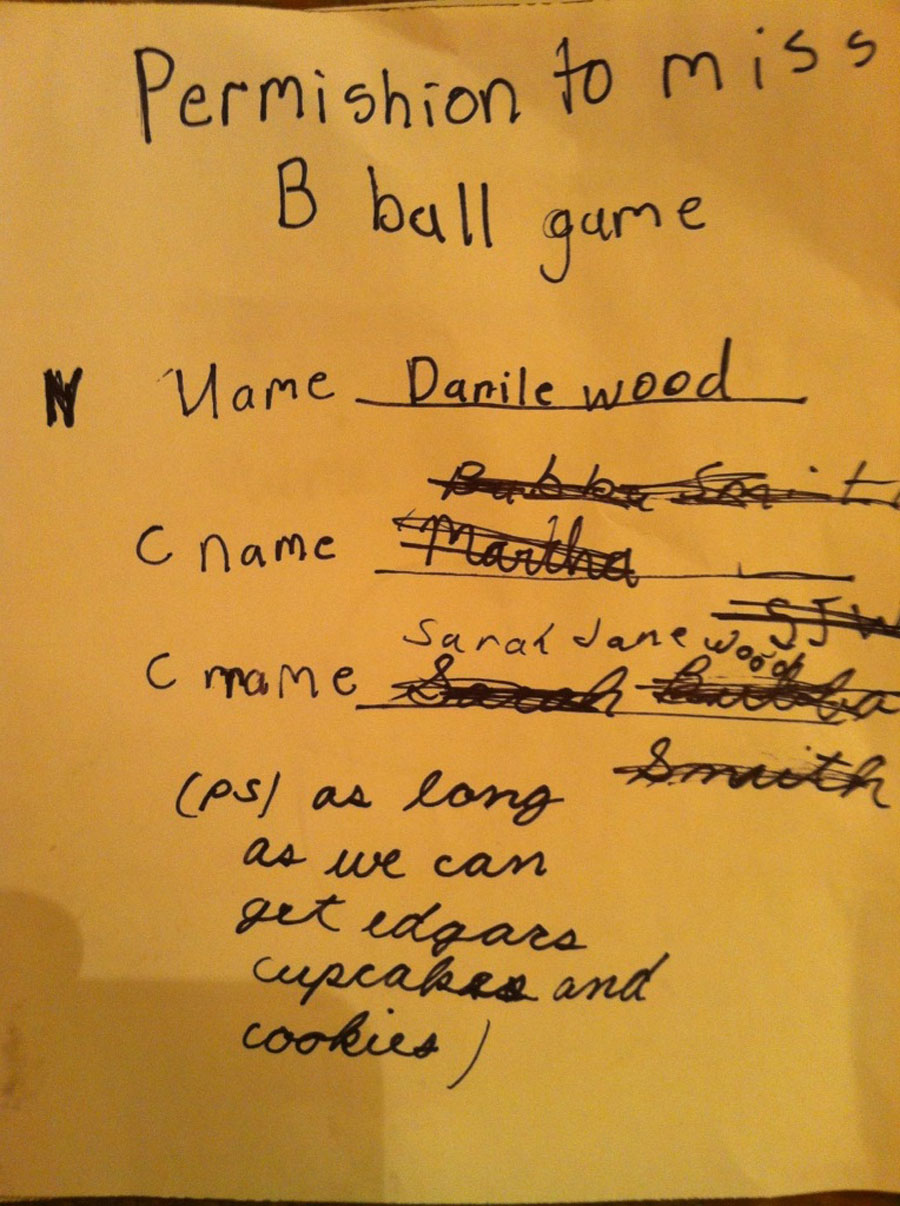 Permishion to miss
B ball game
N Name Danile wood
Bubba Smit
C name Martha
SJW
Sarah Jane wood
C mame Sarah Bubba
Smith
(ps) as long
as we can
get edgars
cupcakes and
cookies)